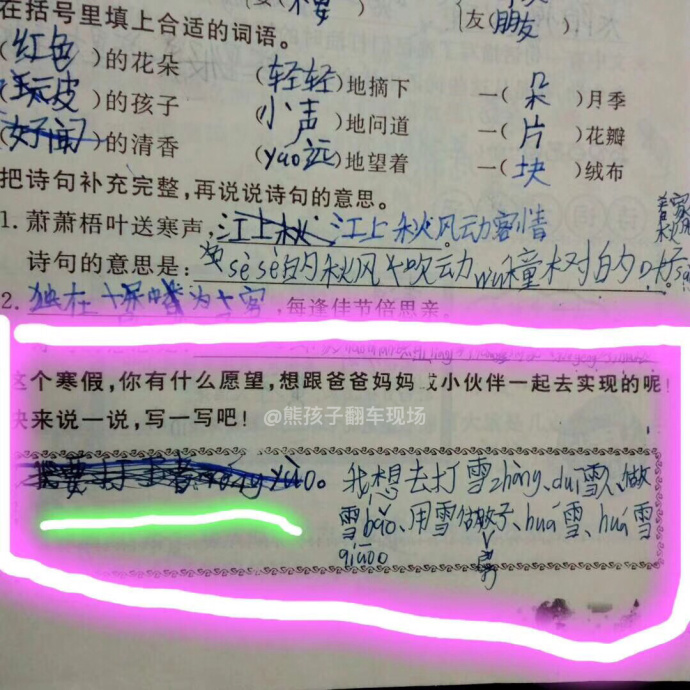 友(朋友)
在括号里填上合适的词语。
(红色)的花朵 (轻轻)地摘下 一(朵)月季
(玩皮)的孩子 (小声)地问道 一(片)花瓣
(好闻)的清香 (yáo远)地望着 一(块)绒布
把诗句补充完整,再说说诗句的意思。
1. 萧萧梧叶送寒声,江上秋江上秋风动客情
诗句的意思是: sè sè的秋风吹动wú 树的叶
2. 独在 为 客,每逢佳节倍思亲。
个寒假,你有什么愿望,想跟爸爸妈妈或小伙伴一起去实现的呢!
快来说一说,写一写吧!
@熊孩子翻车现场
我要打王者róng yào。 我想去打雪zhàng、duī雪人、做
雪bāo、用雪做 子、huá雪、huá雪
qiāo